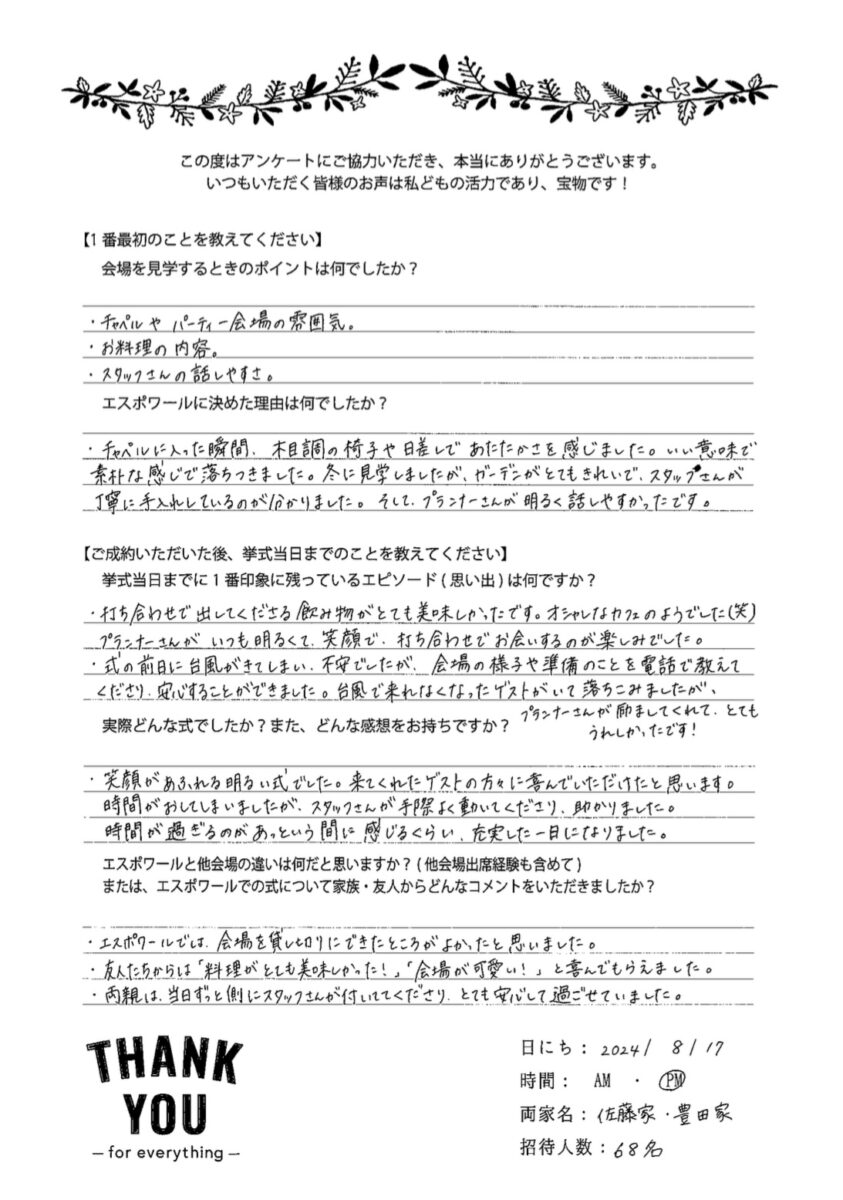 この度はアンケートにご協力いただき、本当にありがとうございます。
いつもいただく皆様のお声は私どもの活力であり、宝物です！
【1番最初のことを教えてください】
会場を見学するときのポイントは何でしたか？
・チャペルや パーティー会場の雰囲気。
・お料理の内容。
・スタッフさんの話しやすさ。
エスポワールに決めた理由は何でしたか？
・チャペルに入った瞬間、木目調の椅子や日差しで あたたかさを感じました。いい意味で
素朴な感じで落ちつきました。冬に見学しましたが、ガーデンがとてもきれいで、スタッフさんが
丁寧に手入れしているのが分かりました。そして、プランナーさんが明るく話しやすかったです。
【ご成約いただいた後、挙式当日までのことを教えてください】
挙式当日までに1番印象に残っているエピソード(思い出)は何ですか？
・打ち合わせで出してくださる飲み物がとても美味しかったです。オシャレなカフェのようでした(笑)
プランナーさんが いつも明るくて、笑顔で、打ち合わせでお会いするのが楽しみでした。
・式の前日に台風がきてしまい、不安でしたが、会場の様子や準備のことを電話で教えて
くださり、安心することができました。台風で来れなくなったゲストがいて落ちこみましたが、
プランナーさんが励ましてくれて、とても
うれしかったです！
実際どんな式でしたか？また、どんな感想をお持ちですか？
・笑顔があふれる明るい式でした。来てくれたゲストの方々に喜んでいただけたと思います。
時間がおしてしまいましたが、スタッフさんが手際よく動いてくださり、助かりました。
時間が過ぎるのがあっという間に感じるくらい、充実した一日になりました。
エスポワールと他会場の違いは何だと思いますか？(他会場出席経験も含めて)
または、エスポワールでの式について家族・友人からどんなコメントをいただきましたか？
・エスポワールでは、会場を貸し切りにできたところがよかったと思いました。
・友人たちからは「料理がとても美味しかった！」「会場が可愛い！」と喜んでもらえました。
・両親は、当日ずっと側にスタッフさんが付いててくださり、とても安心して過ごせていました。
THANK
YOU
– for everything –
日にち：2024/ 8/17
時間： AM ・ PM
両家名：佐藤家・豊田家
招待人数：68名